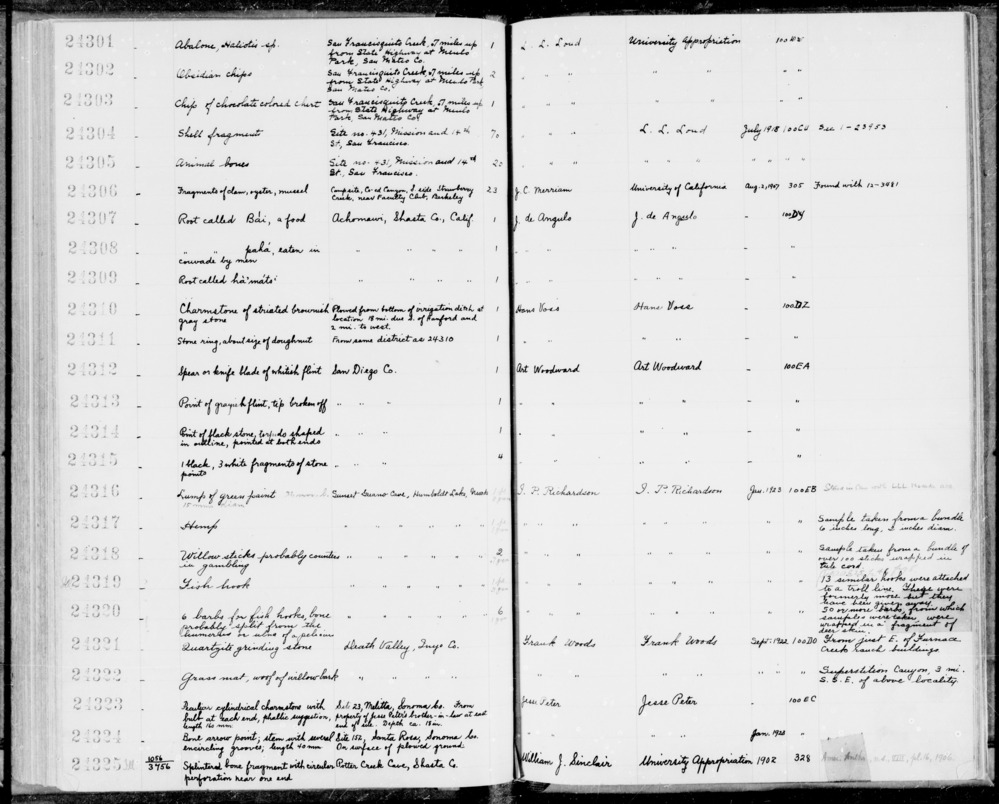 24301 - Abalone, Haliotis sp. San Francisquito Creek, 7 miles up 1 L. L. Loud University Appropriation
from State Highway at Menlo
Park, San Mateo Co.
24302 - Obsidian chips San Francisquito Creek, 7 miles up 2 " " " " "
from State Highway at Menlo Park
San Mateo Co.
24303 - Chip of chocolate colored chert San Francisquito Creek, 7 miles up 1 " " " " "
from State Highway at Menlo
Park, San Mateo Co.
24304 - Shell fragment Site no. 431, Mission and 14th 70 " " " L. L. Loud July 1918 See 1-23953
St, San Francisco.
24305 - Animal bones Site no. 431, Mission and 14th 20 " " " " " " " " " "
St., San Francisco.
24306 - Fragments of clam, oyster, mussel Campsite, Co-ed Canyon, S. side Strawberry 23 J. C. Merriam University of California Aug. 2, 1907 305 Found with 12-3981
Creek, near Faculty Club, Berkeley
24307 - Root called Bái, a food Achomawi, Shasta Co., Calif. 1 J. de Angulo J. de Angulo - 100DY
24308 - " " pahá, eaten in " " " " 1 " " " " - "
couvade by men
24309 - Root called há'máts' " " " " 1 " " " " - "
24310 - Charmstone of striated brownish Plowed from bottom of irrigation ditch at 1 Hans Voss Hans Voss - 100DZ
gray stone location 18 mi. due S. of Hanford and
2 mi. to west.
24311 - Stone ring, about size of doughnut From same district as 24310 1 " " " " - "
24312 - Spear or knife blade of whitish flint San Diego Co. 1 Art Woodward Art Woodward - 100EA
24313 - Point of grayish flint, tip broken off " " " 1 " " " " - "
24314 - Point of black stone, torpedo shaped " " " 1 " " " " - "
in outline, pointed at both ends
24315 - 1 black, 3 white fragments of stone " " " 4 " " " " - "
points
24316 - Lump of green paint Sunset Guano Cave, Humboldt Lake, I. P. Richardson I. P. Richardson Jan. 1923 100EB
24317 - Hemp " " " " " " " " " " " " Sample taken from a bundle
6 inches long, 2 inches diam.
24318 - Willow sticks probably counters " " " " " 2 " " " " " " " Sample taken from a bundle of
in gambling over 100 sticks wrapped in
tule cord.
24319 - Fish hook " " " " " " " " " " " " 13 similar hooks were attached
to a troll line. There were
formerly more but they
have been given away
24320 - 6 barbs for fish hooks, bone " " " " " 6 " " " " " " " 50 or more barbs, from which
probably split from the samples were taken were
humerus or ulna of a pelican wrapped in a fragment of
deer skin.
24321 - Quartzite grinding stone Death Valley, Inyo Co. Frank Woods Frank Woods Sept. 1922 100DO From just E. of Furnace
Creek Ranch buildings.
24322 - Grass mat, woof of willow bark " " " " " " " " " " Superstition Canyon, 3 mi.
S. S. E. of above locality.
24323 - Peculiar cylindrical charmstone with Site 23, Melitta, Sonoma Co. From Jesse Peter Jesse Peter - 100EC
bulb at each end, phallic suggestion, property of Jesse Peter's brother-in-law at east
length 126 mm. end of site. Depth ca. 18 in.
24324 - Bone arrow point; stem with several Site 152, Santa Rosa, Sonoma Co. " " " " Jan. 1923 "
encircling grooves, length 40 mm On surface of plowed ground
24325 1056/3756 Splintered bone fragment with circular Potter Creek Cave, Shasta Co. William J. Sinclair University Appropriation 1902 328
perforation near one end